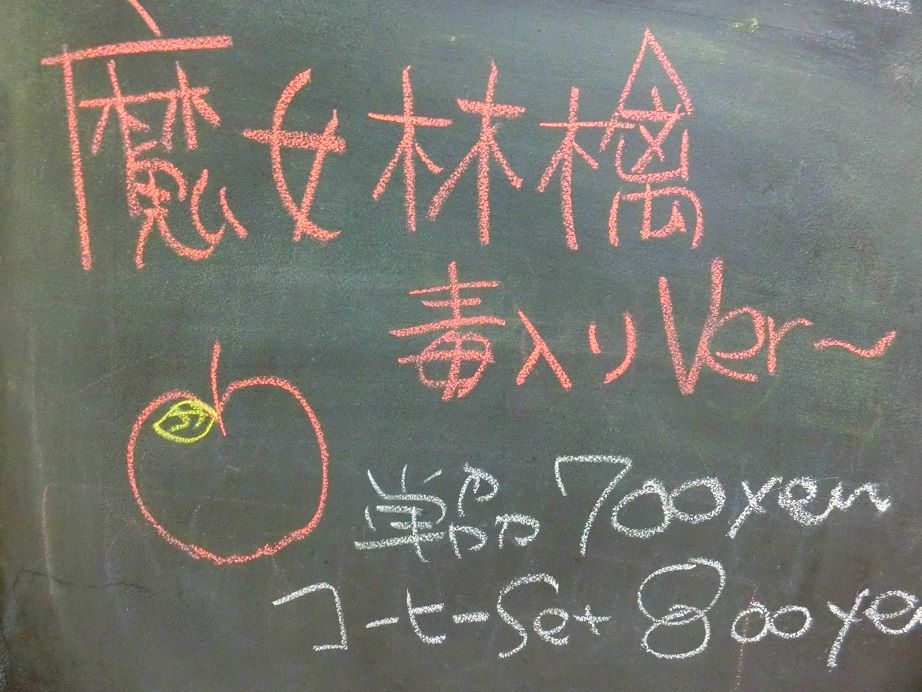 魔女林檎
毒入りVer～
単品 700yen
コーヒーSet 800yen